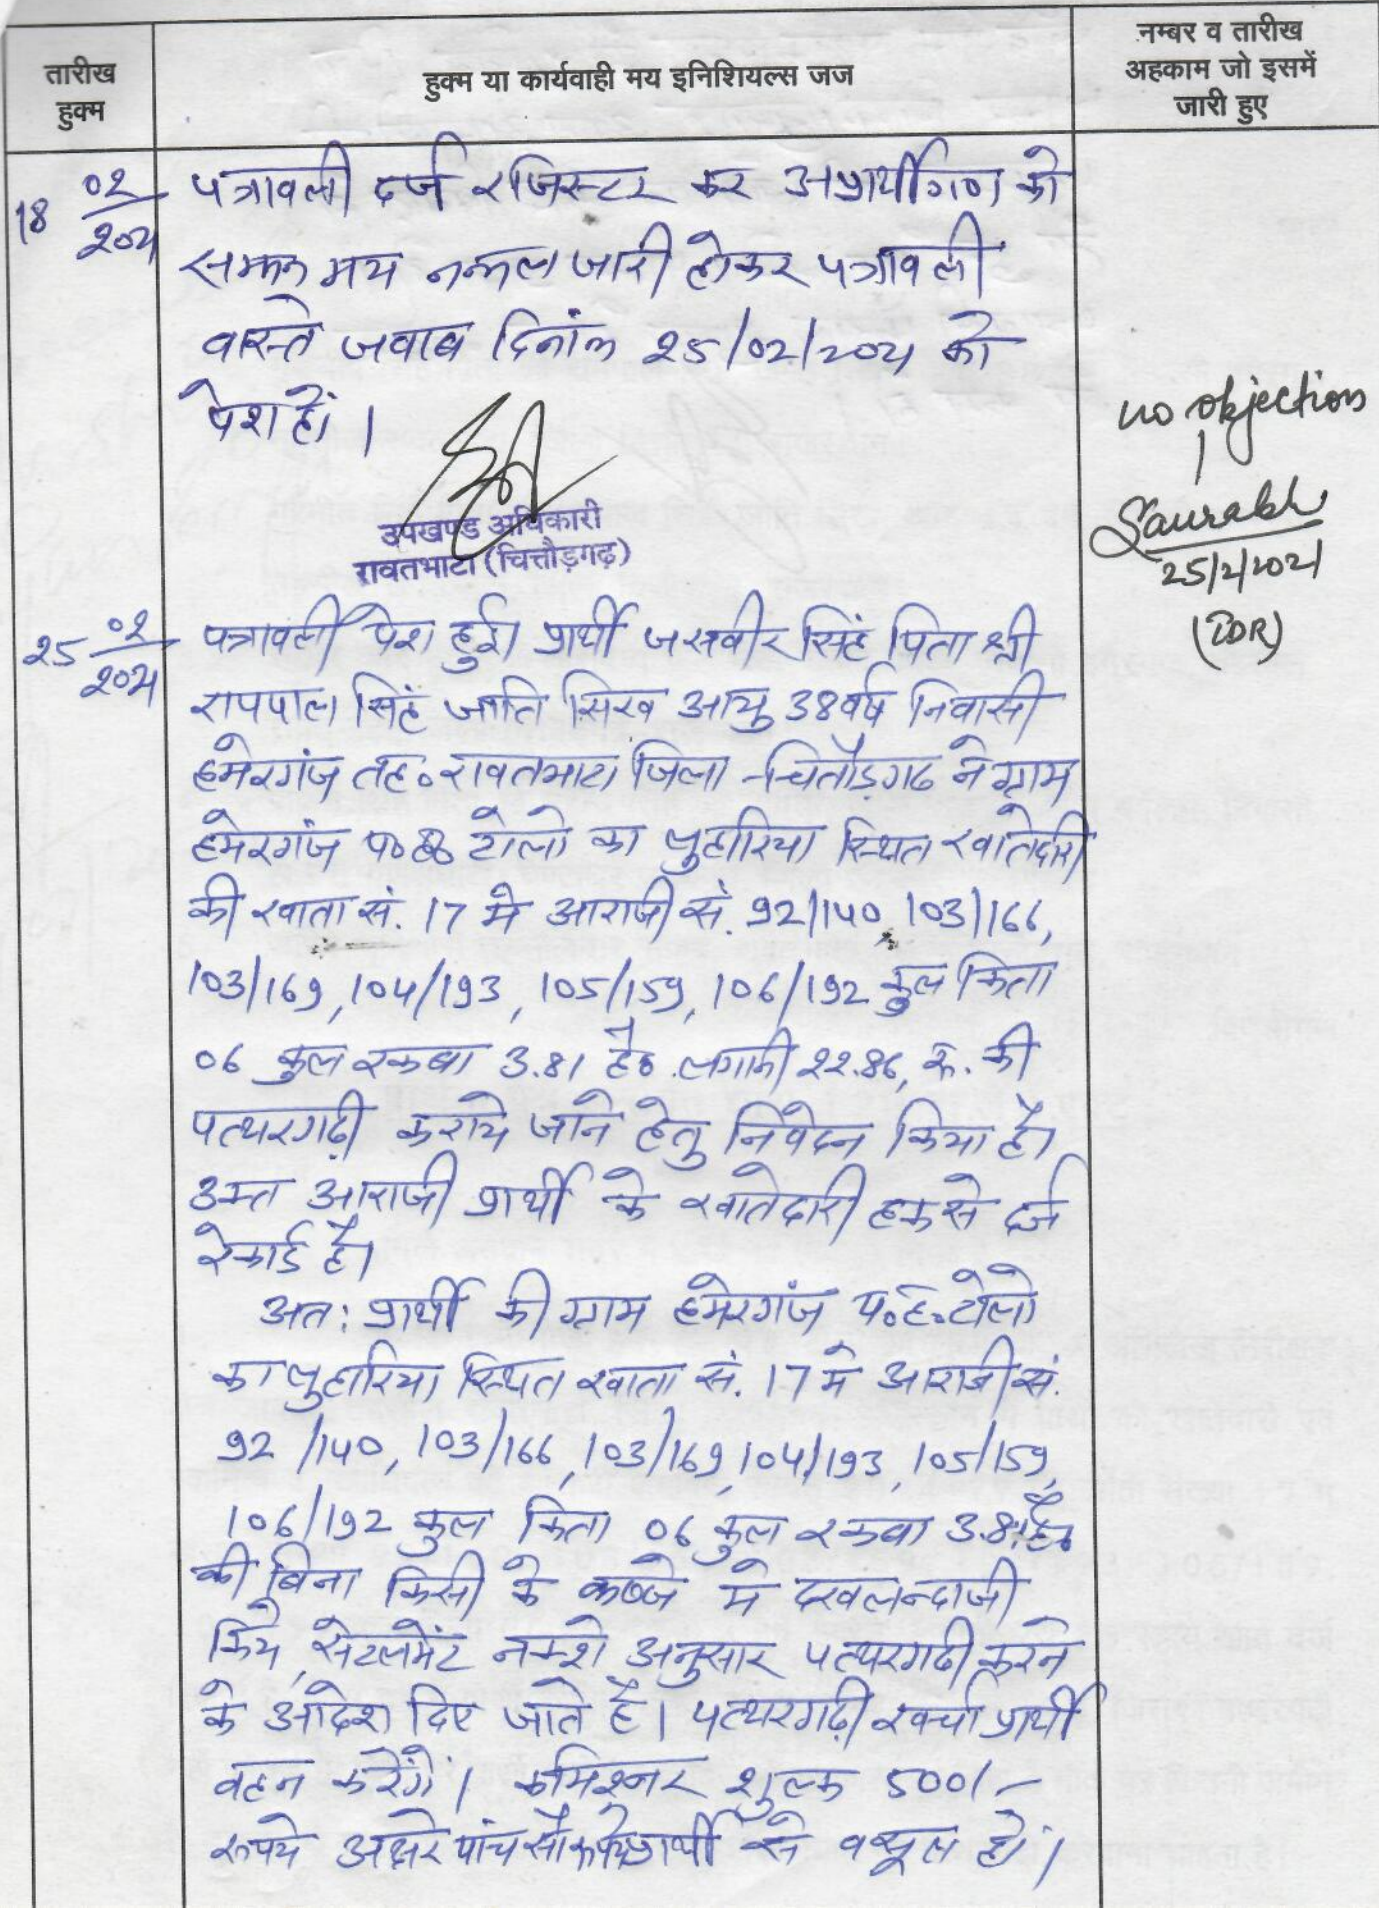 तारीख
हुक्म
हुक्म या कार्यवाही मय इनिशियल्स जज
नम्बर व तारीख
अहकाम जो इसमें
जारी हुए
18 02/2021
पत्रावली दर्ज रजिस्टर कर अप्रार्थीगण को
सम्मन मय नकल जारी होकर पत्रावली
वास्ते जवाब दिनांक 25/02/2021 को
पेश हों।
उपखण्ड अधिकारी
रावतभाटा (चित्तौड़गढ़)
no objection
Saurabh
25/2/2021
(TDR)
25 02/2021
पत्रावली पेश हुई। प्रार्थी जसवीर सिंह पिता श्री
रायपाल सिंह जाति सिख आयु 38 वर्ष निवासी
हमेरगंज तह० रावतभाटा जिला चितौड़गढ ने ग्राम
हमेरगंज प० ह० टोलो का लुहारिया स्थित खातेदारी
की खाता सं. 17 मे आराजी सं. 92/140, 103/166,
103/169, 104/193, 105/159, 106/192 कुल किता
06 कुल रकबा 3.81 है० लगानी 22.86, रू. की
पत्थरगढी कराये जाने हेतु निवेदन किया है।
उक्त आराजी प्रार्थी के खातेदारी हक से दर्ज
रेकार्ड है।
अत: प्रार्थी की ग्राम हमेरगंज प.ह. टोलो
का लुहारिया स्थित खाता सं. 17 मे आराजी सं.
92/140, 103/166, 103/169, 104/193, 105/159,
106/192 कुल किता 06 कुल रकबा 3.81 है०
की बिना किसी के कब्जे मे दखलन्दाजी
किये, सेटलमेंट नक्शे अनुसार पत्थरगढी करने
के आदेश दिए जाते है। पत्थरगढ़ी खर्चा प्रार्थी
वहन करेंगें। कमिश्नर शुल्क 500/-
रूपये अक्षरे पांच सौ रूपये प्रार्थी से वसूल हों।